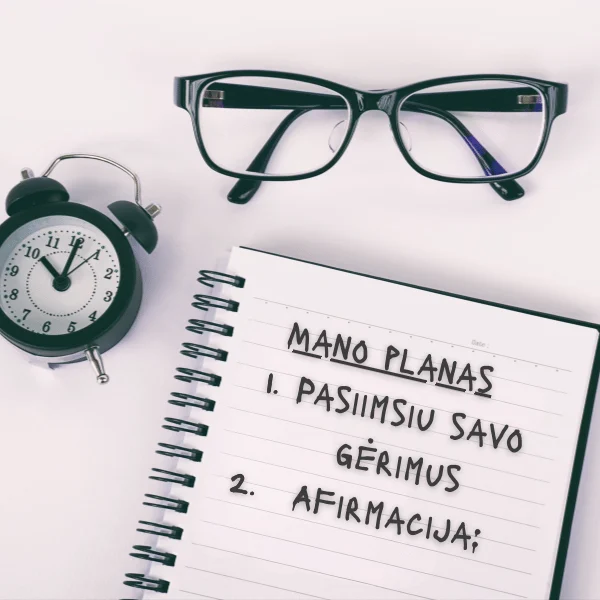 MANO PLANAS
1. PASIIMSIU SAVO
GĖRIMUS
2. AFIRMACIJA;